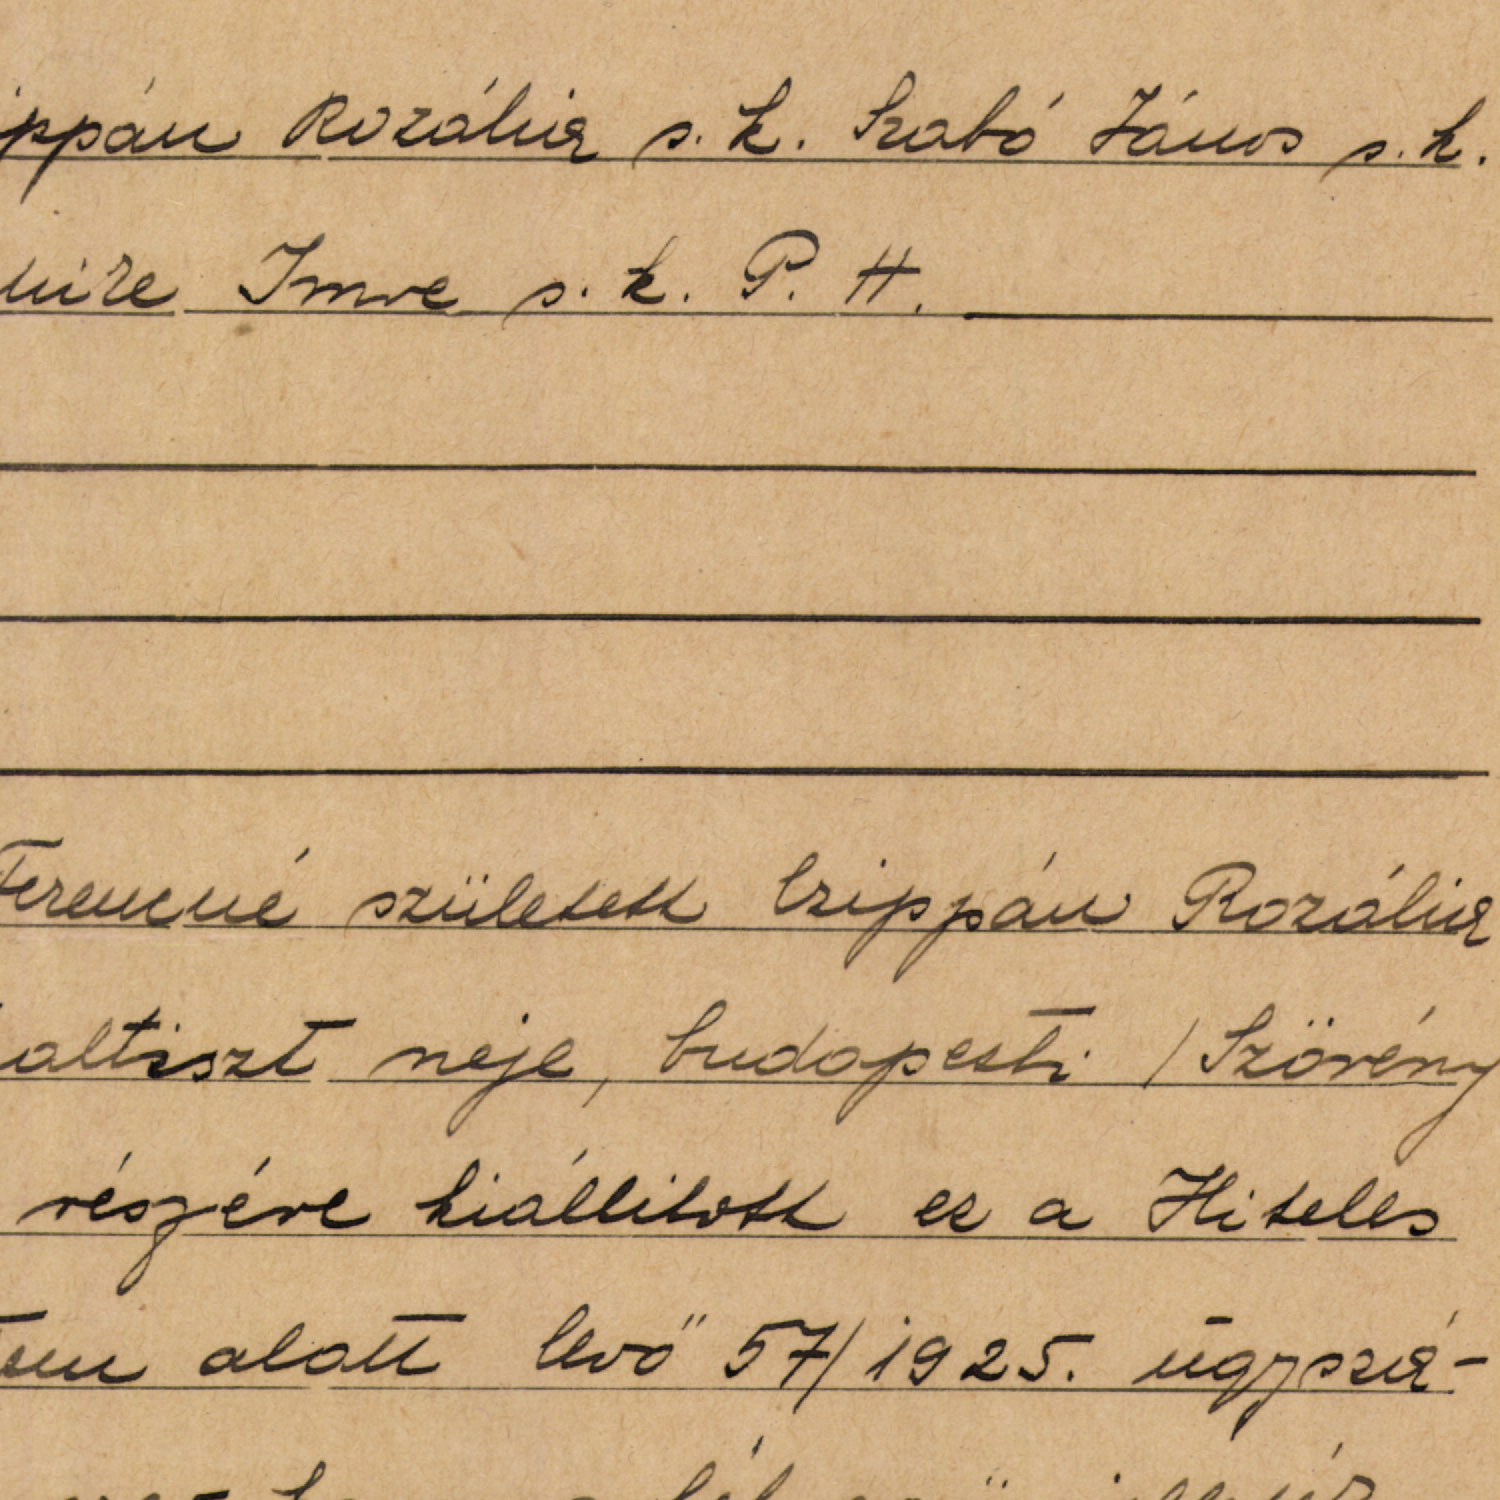 ippán Rozália s. k. Szabó János s. k.
Imre s. k. P. H.
Ferencné született Czippán Rozália
altiszt neje, budapesti /Szövény
részére kiállitott ez a Hiteles
alatt levő 57/1925. ügyszá-